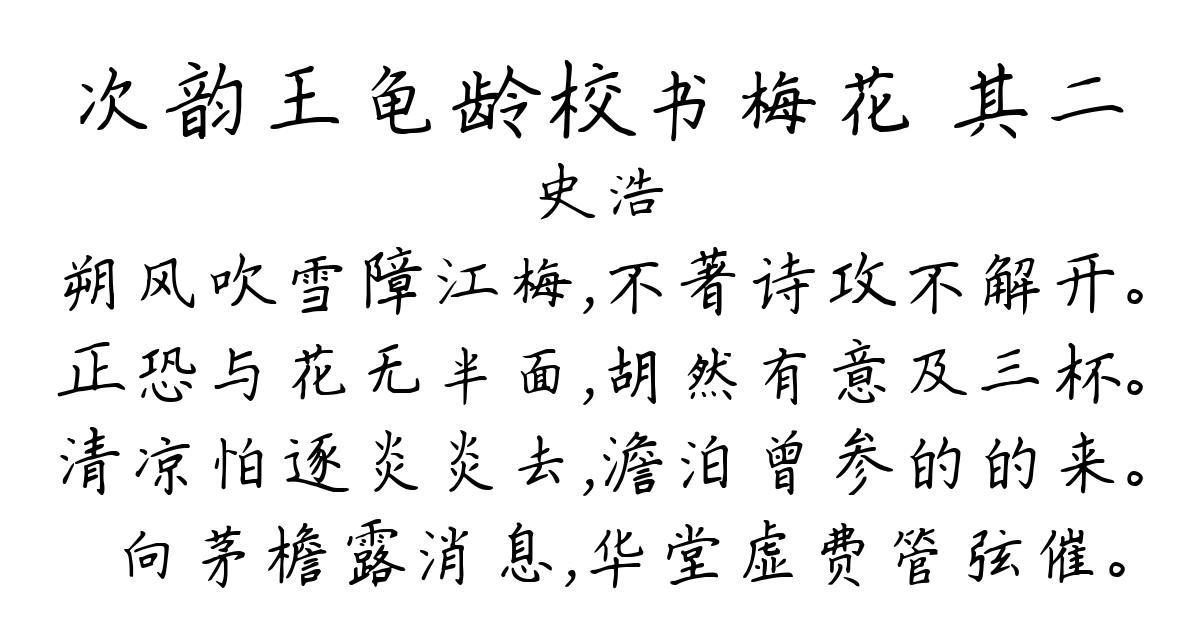 次韵王龟龄校书梅花 其二
史浩
朔风吹雪障江梅,不著诗攻不解开。
正恐与花无半面,胡然有意及三杯。
清凉怕逐炎炎去,澹泊曾参的的来。
向茅檐露消息,华堂虚费管弦催。